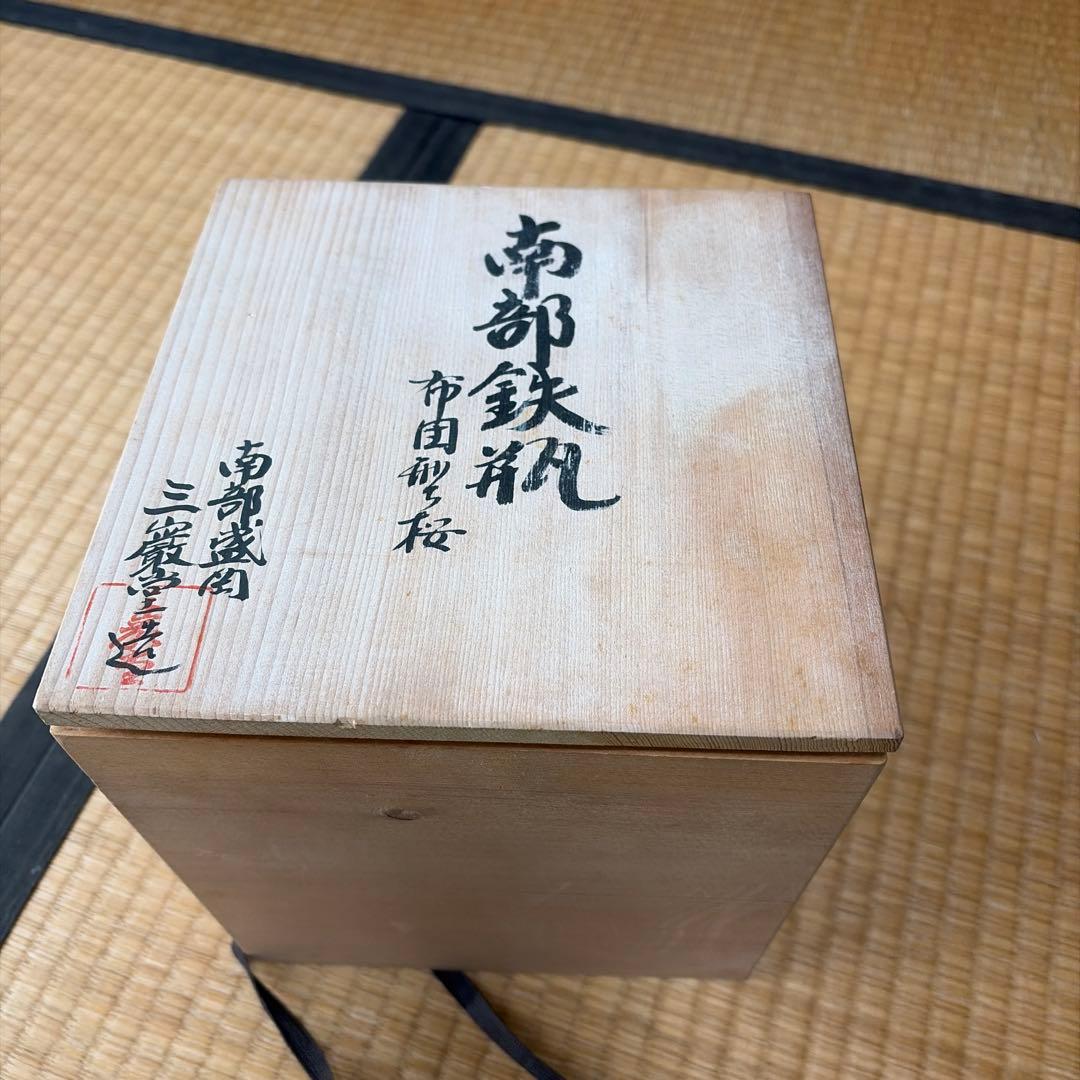 南部鉄瓶
布団型ち桜
南部盛岡
三巌堂造